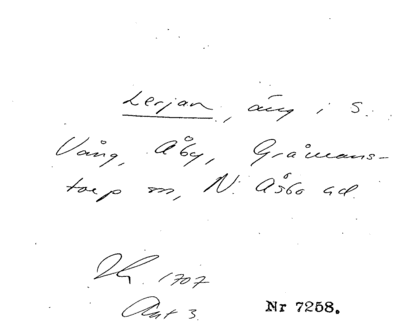 Lerjan, äng i S.
Vång, Åby, Gråmans-
torp sn, N. Åsbo hd.
1707
Akt 3.
Nr 7258.